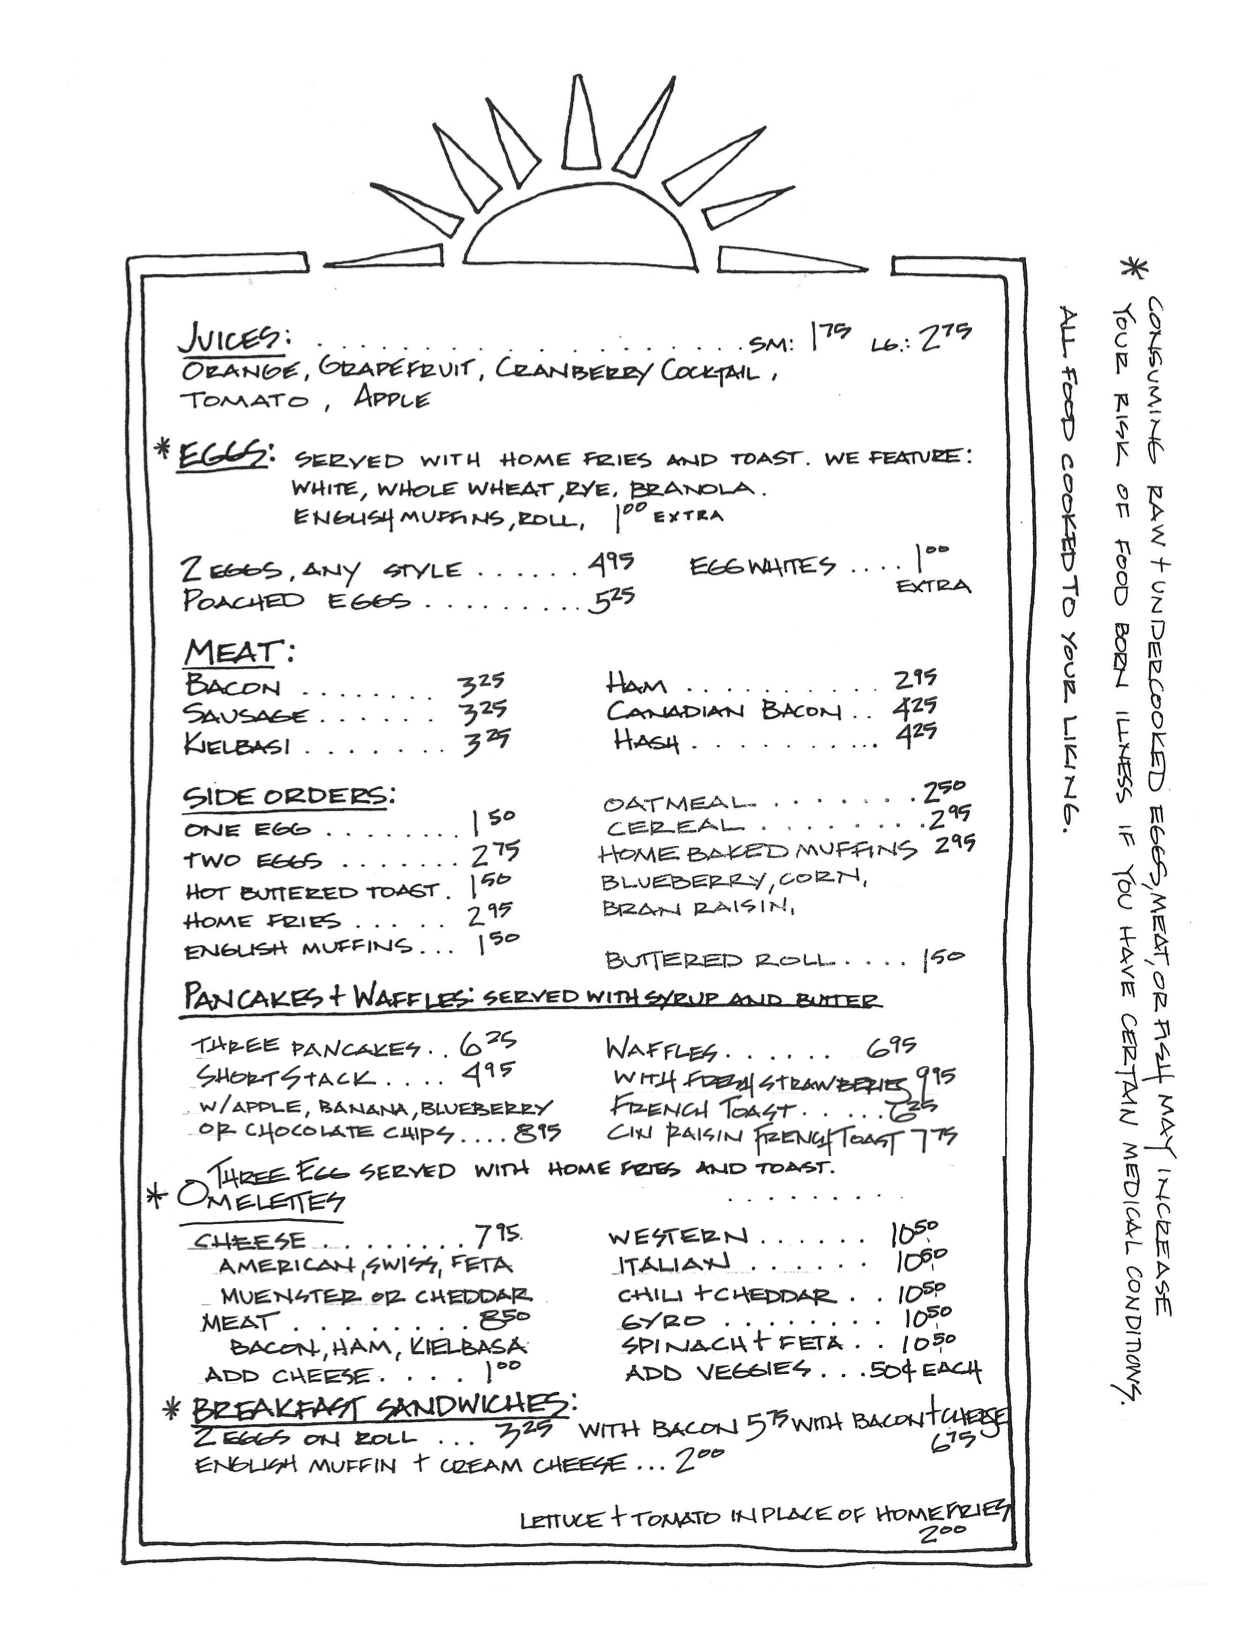 JUICES: . . . . . . . . . . . . . . . . . . . SM: 1 75 LG.: 2 75
ORANGE, GRAPEFRUIT, CRANBERRY COCKTAIL,
TOMATO, APPLE
* EGGS: SERVED WITH HOME FRIES AND TOAST. WE FEATURE:
WHITE, WHOLE WHEAT, RYE, BRANOLA.
ENGLISH MUFFINS, ROLL, 1 00 EXTRA
2 EGGS, ANY STYLE . . . . . . 4 95
POACHED EGGS . . . . . . . . . 5 25
EGG WHITES . . . . 1 00
EXTRA
MEAT:
BACON . . . . . . . . 3 25
SAUSAGE . . . . . . 3 25
KIELBASI . . . . . . . 3 25
HAM . . . . . . . . . . 2 95
CANADIAN BACON . . 4 25
HASH . . . . . . . . . . . . 4 25
SIDE ORDERS:
ONE EGG . . . . . . . . 1 50
TWO EGGS . . . . . . . 2 75
HOT BUTTERED TOAST . 1 50
HOME FRIES . . . . . . 2 95
ENGLISH MUFFINS . . . 1 50
OATMEAL . . . . . . . . 2 50
CEREAL . . . . . . . . . 2 95
HOME BAKED MUFFINS 2 95
BLUEBERRY, CORN,
BRAN RAISIN,
BUTTERED ROLL . . . . 1 50
PANCAKES + WAFFLES: SERVED WITH SYRUP AND BUTTER
THREE PANCAKES . . 6 25
SHORT STACK . . . . 4 95
W/APPLE, BANANA, BLUEBERRY
OR CHOCOLATE CHIPS . . . . 8 95
WAFFLES . . . . . . 6 95
WITH FRESH STRAWBERRIES 9 95
FRENCH TOAST . . . . . 7 25
CIN RAISIN FRENCH TOAST 7 75
THREE EGG SERVED WITH HOME FRIES AND TOAST.
* OMELETTES . . . . . . . . .
CHEESE . . . . . . . . . 7 95
AMERICAN, SWISS, FETA
MUENSTER OR CHEDDAR
MEAT . . . . . . . . . 8 50
BACON, HAM, KIELBASA
ADD CHEESE . . . . . 1 00
WESTERN . . . . . . 10 50
ITALIAN . . . . . . 10 50
CHILI + CHEDDAR . . 10 50
GYRO . . . . . . . . 10 50
SPINACH + FETA . . 10 50
ADD VEGGIES . . . 50¢ EACH
* BREAKFAST SANDWICHES:
2 EGGS ON ROLL . . . 3 25 WITH BACON 5 75 WITH BACON + CHEESE
6 75
ENGLISH MUFFIN + CREAM CHEESE . . . 2 00
LETTUCE + TOMATO IN PLACE OF HOME FRIES
2 00
* CONSUMING RAW + UNDERCOOKED EGGS, MEAT, OR FISH MAY INCREASE
YOUR RISK OF FOOD BORN ILLNESS IF YOU HAVE CERTAIN MEDICAL CONDITIONS.
ALL FOOD COOKED TO YOUR LIKING.